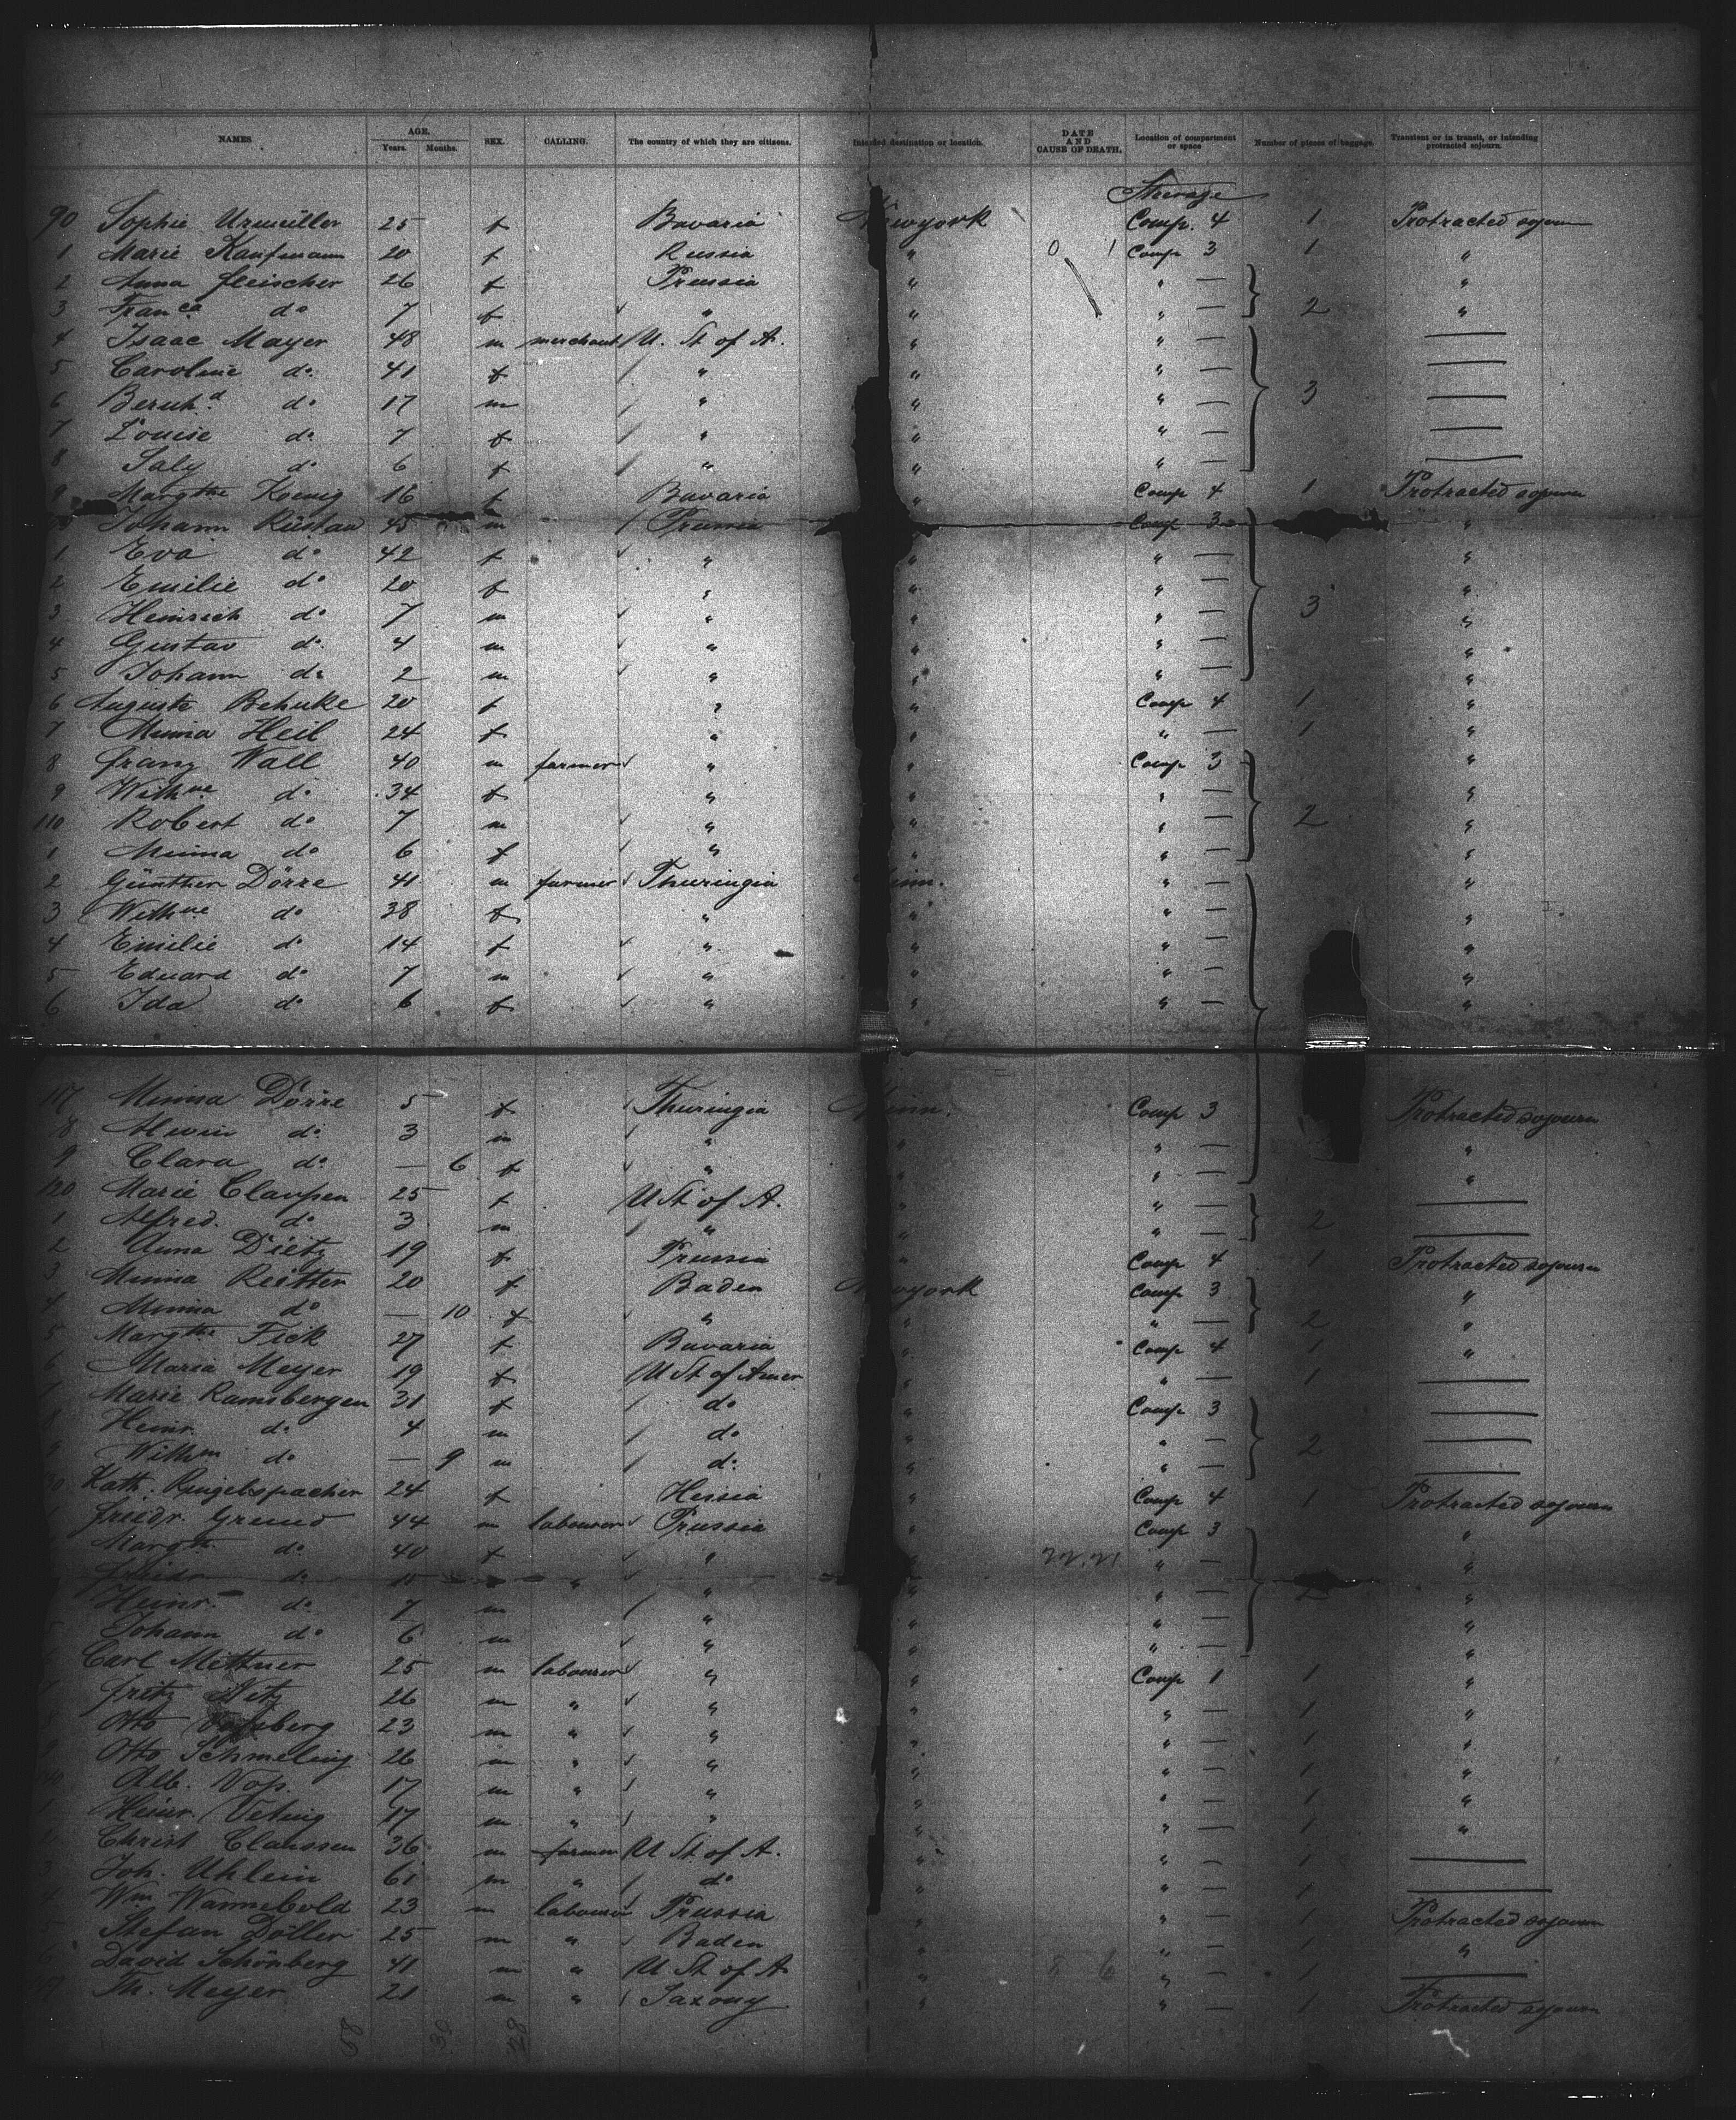 NAMES AGE. Years. Months. SEX. CALLING. The country of which they are citizens. Intended destination or location. DATE AND CAUSE OF DEATH. Location of compartment or space Number of pieces of baggage. Transient or in transit, or intending protracted sojourn.
Steerage
90 Sophie Urmüller 25 f Bavaria Newyork Comp. 4 1 Protracted sojourn
1 Marie Kaufmann 20 f Russia " Comp 3 1 "
2 Anna Fleischer 26 f Prussia " " — "
3 Franca do 7 f " " " — 2 "
4 Isaac Mayer 48 m merchant U. St of A. " " — —
5 Caroline do 41 f " " " — —
6 Bernhd do 17 m " " " — 3 —
7 Louise do 7 f " " " — —
8 Saly do 6 f " " " — —
9 Margthe Koenig 16 f Bavaria " Comp 4 1 Protracted sojourn
Johann Rüstau 45 m Prussia Comp 3 "
1 Eva do 42 f " " " — "
2 Emilie do 20 f " " " — "
3 Heinrich do 7 m " " " — 3 "
4 Gustav do 4 m " " " — "
5 Johann do 2 m " " " — "
6 Auguste Behnke 20 f " " Comp 4 1 "
7 Minna Heil 24 f " " " — 1 "
8 Franz Wall 40 m farmer " " Comp 3 "
9 Withne do 34 f " " " — "
110 Robert do 7 m " " " — 2 "
1 Minna do 6 f " " " — "
2 Günther Dörre 41 m farmer Thuringia " — "
3 Withne do 38 f " " " — "
4 Emilie do 14 f " " " — "
5 Eduard do 7 m " " " — "
6 Ida do 6 f " " " — "
117 Minna Dörre 5 f Thuringia Comp 3 Protracted sojourn
8 Alwin do 3 m " " " — "
9 Clara do — 6 f " " " — "
120 Marie Claussen 25 f U St of A. " " — —
1 Alfred. do 3 m " " " — 2 —
2 Anna Dietz 19 f Prussia " Comp 4 1 Protracted sojourn
3 Minna Reitter 20 f Baden Newyork Comp 3 "
4 Minna do — 10 f " " " — 2 "
5 Margthe Fick 27 f Bavaria " Comp 4 1 "
6 Maria Meyer 19 f U St of Amer " " — 1 —
7 Marie Ramsbergen 31 f do " Comp 3 —
8 Heinr. do 4 m do " " — 2 —
9 Withm do — 9 m do " " — —
Kath. Ringelspacher 24 f Hessia " Comp 4 1 Protracted sojourn
Friedr. Grund 44 m labourer Prussia " Comp 3 "
Margth do 40 f " " — "
Friedr do 15 " " " — "
Heinr. do 7 m " " " — 2 "
Johann do 6 m " " " — "
Carl Mittner 25 m labourer " " Comp 1 1 "
Fritz Netz 26 m " " " " — 1 "
Otto 23 m " " " " — 1 "
Otto Schmeling 26 m " " " " — 1 "
Alb. Vop. 17 m " " " " — 1 "
Heinr. Vehnig 17 m " " " " — 1 "
Christ Claussen 36 m farmer U St. of A. " " — 1 —
3 Joh. Uhlein 61 m " do " " — 1 —
4 Wm Wannebold 23 m labourer Prussia " " — 1 Protracted sojourn
Stefan Döller 25 m " Baden " " — 1 "
David Schönberg 41 m " U St of A " " — 1 —
Th. Meyer 21 m " Saxony " " — 1 Protracted sojourn